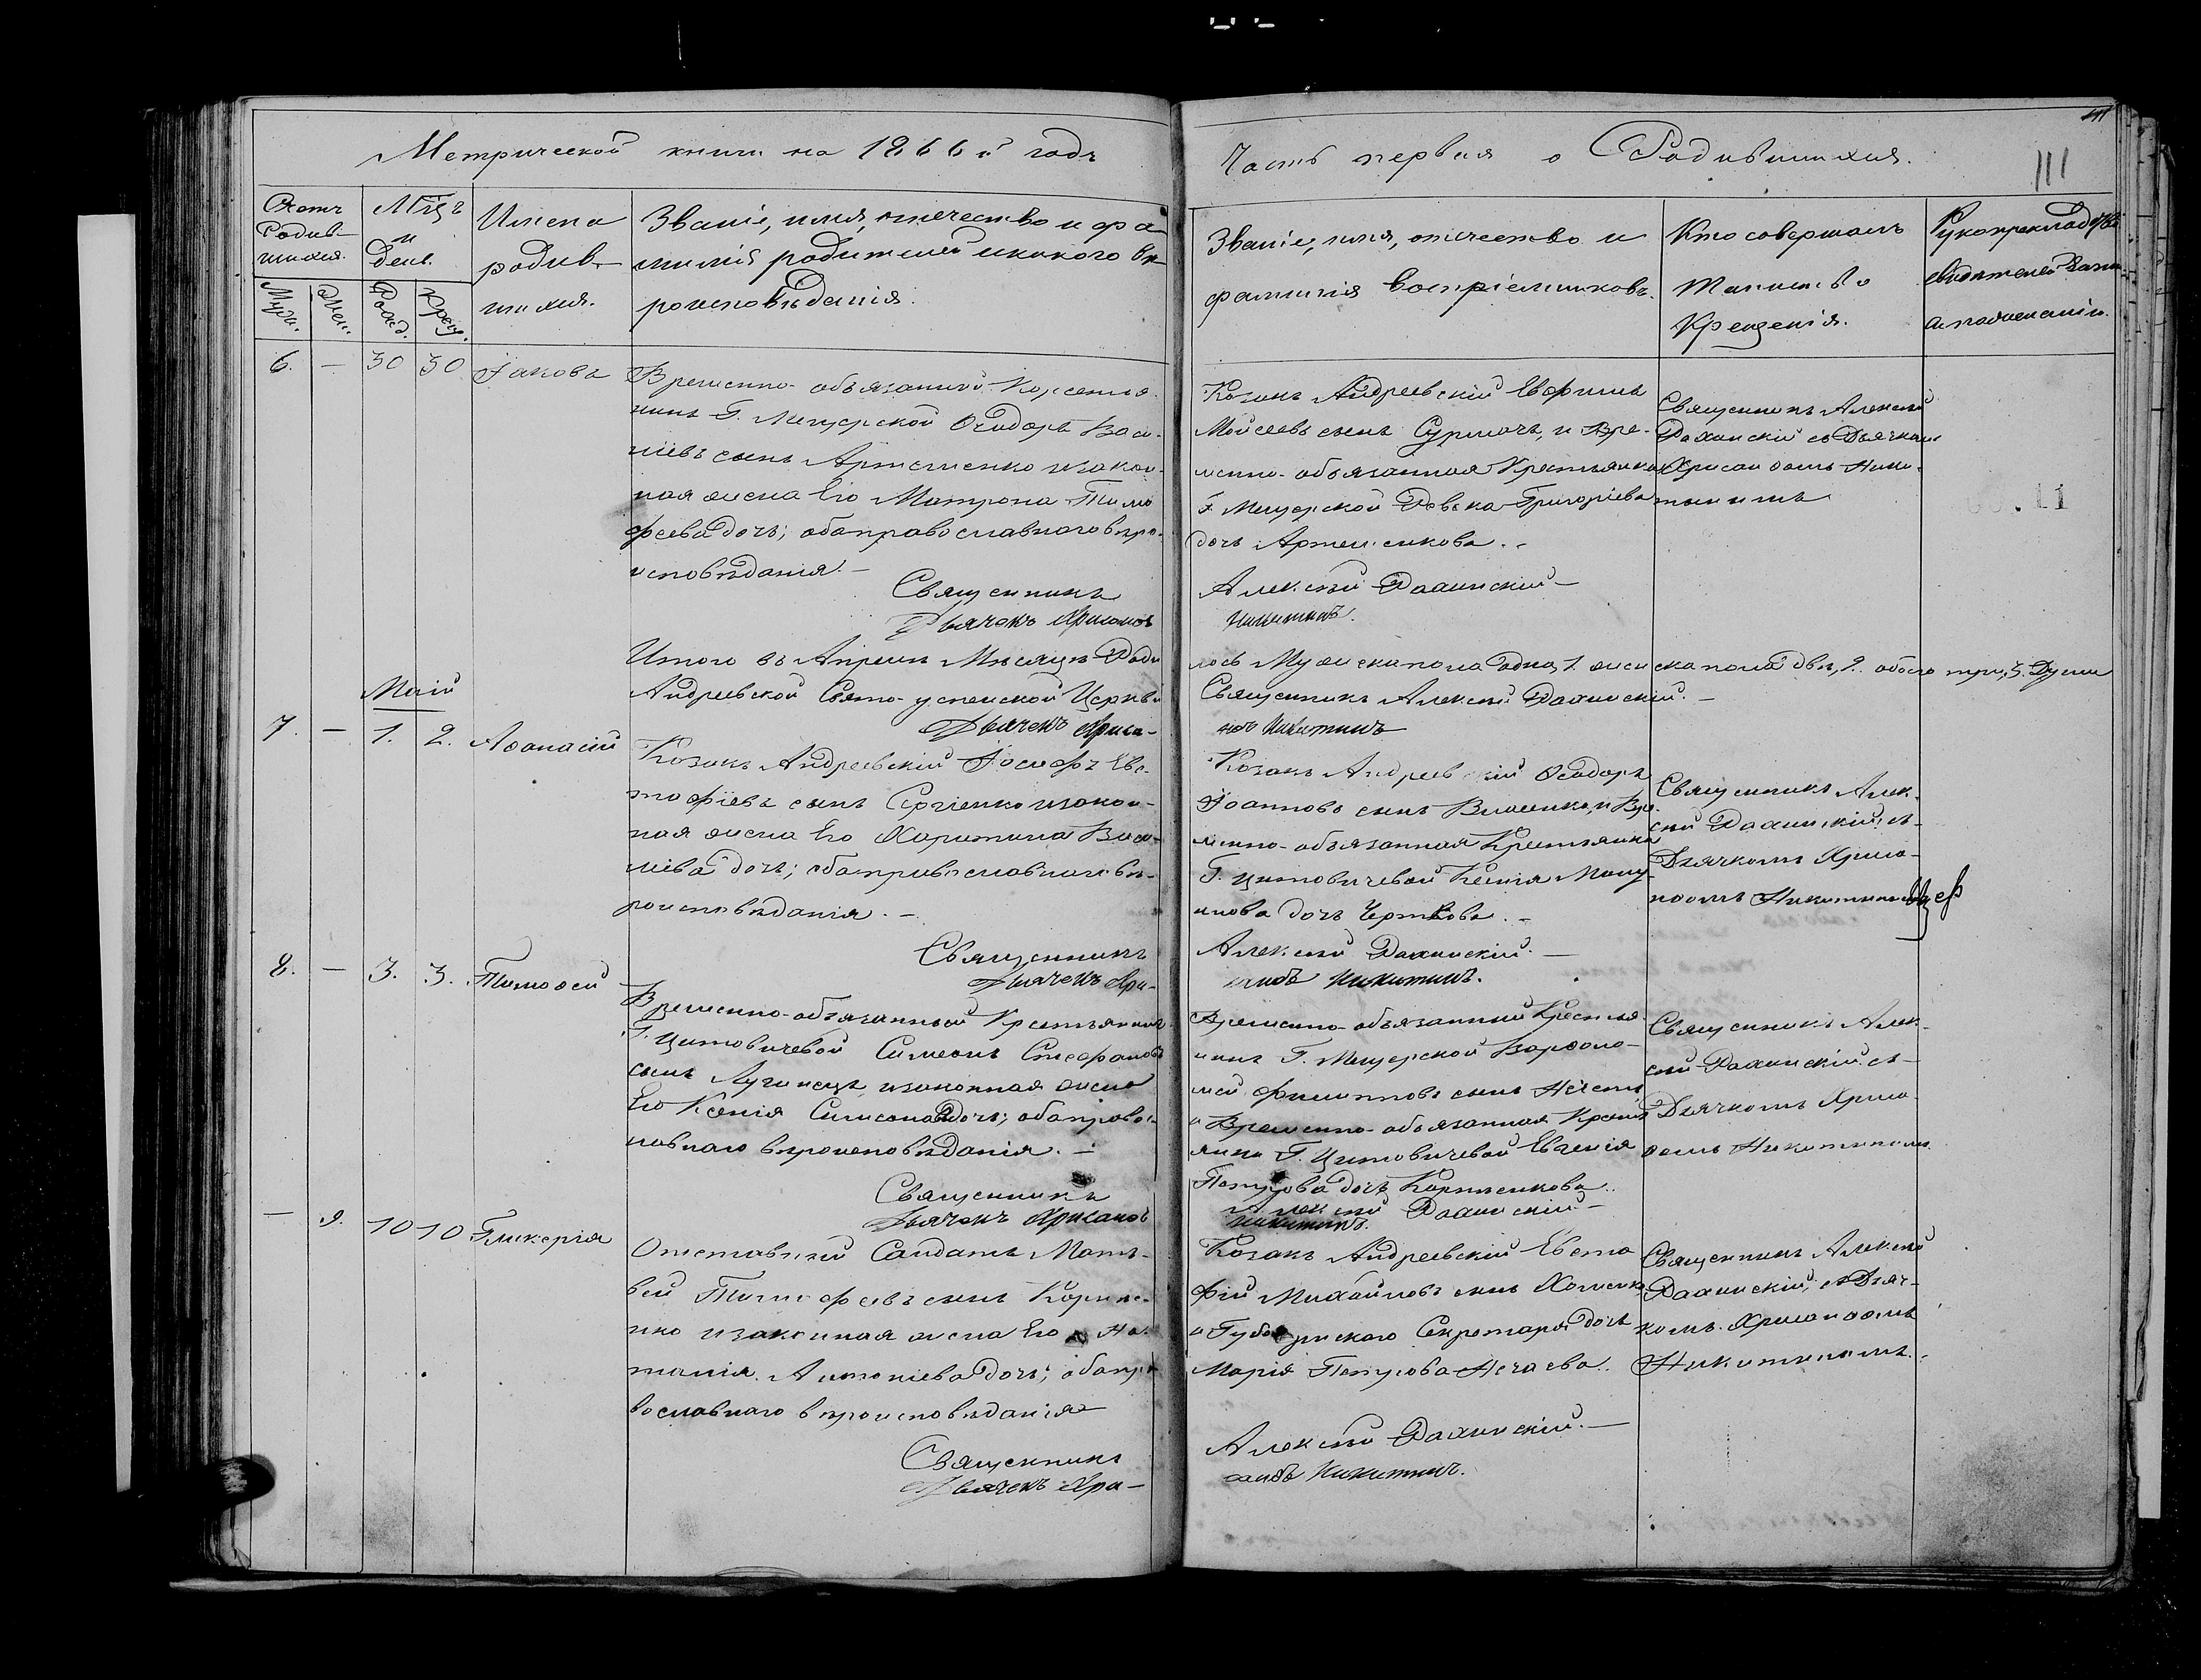 Метрической книги на 1866й годъ
Часть первая о Родившихся.
111
Счетъ родив-шихся.
Муж. Жен.
Мѣцъ и день.
Рожд. Крещ.
Имена родив-шихся.
Званіе, имя, отечество и фа-
миліѧ родителей и какого вѣ-
роисповѣданія.
Званіе, имя, отчество и
фамилія воспріемниковъ.
Кто совершалъ
таинство
Крещенія.
Рукоприкладство
свидетелей
6. — 30 30 Іаковъ
Временно-обязанный Крестья-
нинъ Г. Мещерской Ѳеодоръ Васи-
ліевъ сынъ Артеменко и закон-
ная жена Его Матрона Тимо
феева дочь; оба православнаго вѣро-
исповѣданія. —
Священникъ
Дьячекъ Хрисанѳъ
Козакъ Андреевскій Евфимъ
Мойсеевъ сынъ Сурмачъ, и Вре-
менно-обязанная Крестьянка
Г. Мещерской Григоріева
дочь Артеменкова. -
Алексѣй Рахинскій —
Никитинъ.
Священникъ Алексѣй
Рахинскій съ Дьячкомъ
Хрисанѳомъ Ники-
тинымъ
Итого въ Апрелѣ Мѣсяцѣ Роди
лось Мужеска пола одна, 1. женска пола двѣ, 2. обоего три, 3. Души
Андреевской Свято-успенской Церкви
Священникъ Алексѣй Рахинскій. —
Дьячекъ Хриса-
нѳъ Никитинъ
Маій
7. — 1. 2. Аѳанасій
Козакъ Андреевскій Іосифъ Евс-
тафіевъ сынъ Сергіенко и закон-
ная жена Его Харитина Васи-
ліева дочь; оба православнаго вѣ-
роисповѣданія. —
Священникъ
Дьячекъ Хри-
Козакъ Андреевскій Ѳеодоръ
Іоанновъ сынъ Власенко, и Вре-
менно-обязанная Крестьянка
Г. Цитовичевой Ксенія
дочь Черткова. -
Алексѣй Рахинскій. —
санѳъ Никитинъ.
Священникъ Алек-
сѣй Рахинскій съ
Дьячкомъ Хриса-
нѳомъ Никитинымъ
8. — 3. 3. Тимоѳей
Временно-обязанный Крестьянинъ
Г. Цитовичевой Симеонъ Стефановъ
сынъ Луганецъ и законная жена
Его Ксенія Симеонова дочь; оба правос-
лавнаго вѣроисповѣданія. —
Священникъ
Дьячекъ Хрисанѳъ
Временно-обязанный Крестья-
нинъ Г. Мещерской Варѳоло-
мей Филипповъ сынъ
и Временно-обязанная Кресть
янка Г. Цитовичевой Евгенія
Петрова дочь
Алексѣй Рахинскій —
Никитинъ.
Священникъ Алек-
сѣй Рахинскій съ
Дьячкомъ Хриса-
ѳомъ Никитинымъ.
— 9. 10 10 Гликерія
Отставный Салдатъ Мат-
вей Тимофеевъ сынъ Корние-
нко и законная жена Его На-
талія Антоніева дочь; оба пра
вославнаго вѣроисповѣданія
Священникъ
Дьячекъ Хри-
Козакъ Андреевскій Евста
фій Михайловъ сынъ Хоменко
и Губернскаго Секретаря дочь
Марія Петрова Нечаева.
Алексѣй Рахинскій. —
санѳъ Никитинъ.
Священникъ Алексѣй
Рахинскій, съ Дьяч-
комъ Хрисанѳомъ
Никитинымъ.